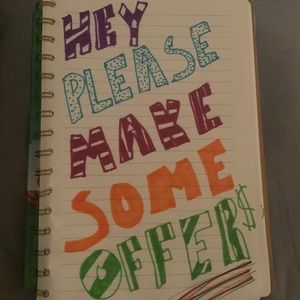 HEY
PLEASE
MAKE
SOME
OFFER$